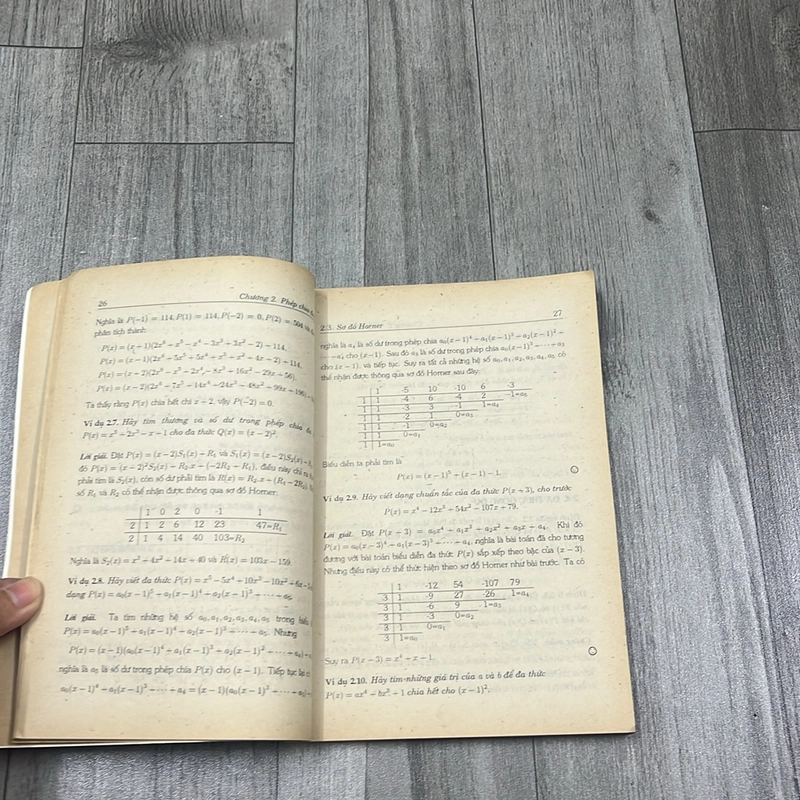 26
Chương 2. Phép chia
Nghĩa là P(−1) = 114, P(1) = 114, P(−2) = 0, P(2) = 504
phân tích thành:
P(x) = (x + 1)(2x⁴ +
P(x) = (x − 1)(2x⁴ + 5x³ +
P(x) = (x + 2)(2x⁴
P(x) = (x − 2)(2x⁴ + 7x³ + 14x²
Ta thấy rằng P(x) chia hết cho x + 2, vậy P(−2) = 0.
Ví dụ 2.7. Hãy tìm thương và số dư trong phép chia đa
P(x) = x⁵ + 2x³ − x + 1 cho đa thức Q(x) = (x − 2)².
Lời giải. Đặt P(x) = (x − 2)S₁(x) + R₁ và S₁(x) = (x − 2)S₂(x) + R
đó P(x) = (x − 2)²S₂(x) + R₂.x + (−2R₂ + R₁), điều này chỉ ra
phải tìm là S₂(x), còn số dư phải tìm là R(x) = R₂.x + (R₁ − 2R₂)
số R₁ và R₂ có thể nhận được thông qua sơ đồ Horner:
1 0 2 0 -1 1
2 1 2 6 12 23 47=R₁
2 1 4 14 40 103=R₂
Nghĩa là S₂(x) = x³ + 4x² + 14x + 40 và R(x) = 103x − 159.
Ví dụ 2.8. Hãy viết đa thức P(x) = x⁵ − 5x⁴ + 10x³ − 10x² + 6x
dạng P(x) = a₀(x − 1)⁵ + a₁(x − 1)⁴ + a₂(x − 1)³ + ··· + a₅.
Lời giải. Ta tìm những hệ số a₀, a₁, a₂, a₃, a₄, a₅ trong biểu
P(x) = a₀(x − 1)⁵ + a₁(x − 1)⁴ + a₂(x − 1)³ + ··· + a₅. Nhưng
P(x) = (x − 1)(a₀(x − 1)⁴ + a₁(x − 1)³ + a₂(x − 1)² + ··· + a₄) +
nghĩa là a₅ là số dư trong phép chia P(x) cho (x − 1). Tiếp tục lại
a₀(x − 1)⁴ + a₁(x − 1)³ + ··· + a₄ = (x − 1)(a₀(x − 1)³ + ··· + a₃)
2.3. Sơ đồ Horner
27
nghĩa là a₄ là số dư trong phép chia a₀(x − 1)⁴ + a₁(x − 1)³ + a₂(x − 1)² +
··· + a₄ cho (x − 1). Sau đó a₃ là số dư trong phép chia a₀(x − 1)³ + ··· + a₃
cho (x − 1), và tiếp tục. Suy ra tất cả những hệ số a₀, a₁, a₂, a₃, a₄, a₅ có
thể nhận được thông qua sơ đồ Horner sau đây:
1 -5 10 -10 6 -3
1 1 -4 6 -4 2 -1=a₅
1 1 -3 3 -1 1=a₄
1 1 -2 1 0=a₃
1 1 -1 0=a₂
1 1 0=a₁
1 1=a₀
Biểu diễn ta phải tìm là
P(x) = (x − 1)⁵ + (x − 1) − 1.
Ví dụ 2.9. Hãy viết dạng chuẩn tắc của đa thức P(x + 3), cho trước
P(x) = x⁴ − 12x³ + 54x² − 107x + 79.
Lời giải. Đặt P(x + 3) = a₀x⁴ + a₁x³ + a₂x² + a₃x + a₄. Khi đó
P(x) = a₀(x − 3)⁴ + a₁(x − 3)³ + ··· + a₄, nghĩa là bài toán đã cho tương
đương với bài toán biểu diễn đa thức P(x) sắp xếp theo bậc của (x − 3).
Nhưng điều này có thể thực hiện theo sơ đồ Horner như bài trước. Ta có
1 -12 54 -107 79
3 1 -9 27 -26 1=a₄
3 1 -6 9 1=a₃
3 1 -3 0=a₂
3 1 0=a₁
3 1=a₀
Suy ra P(x + 3) = x⁴ + x + 1.
Ví dụ 2.10. Hãy tìm những giá trị của a và b để đa thức
P(x) = ax⁴ + bx³ + 1 chia hết cho (x − 1)².